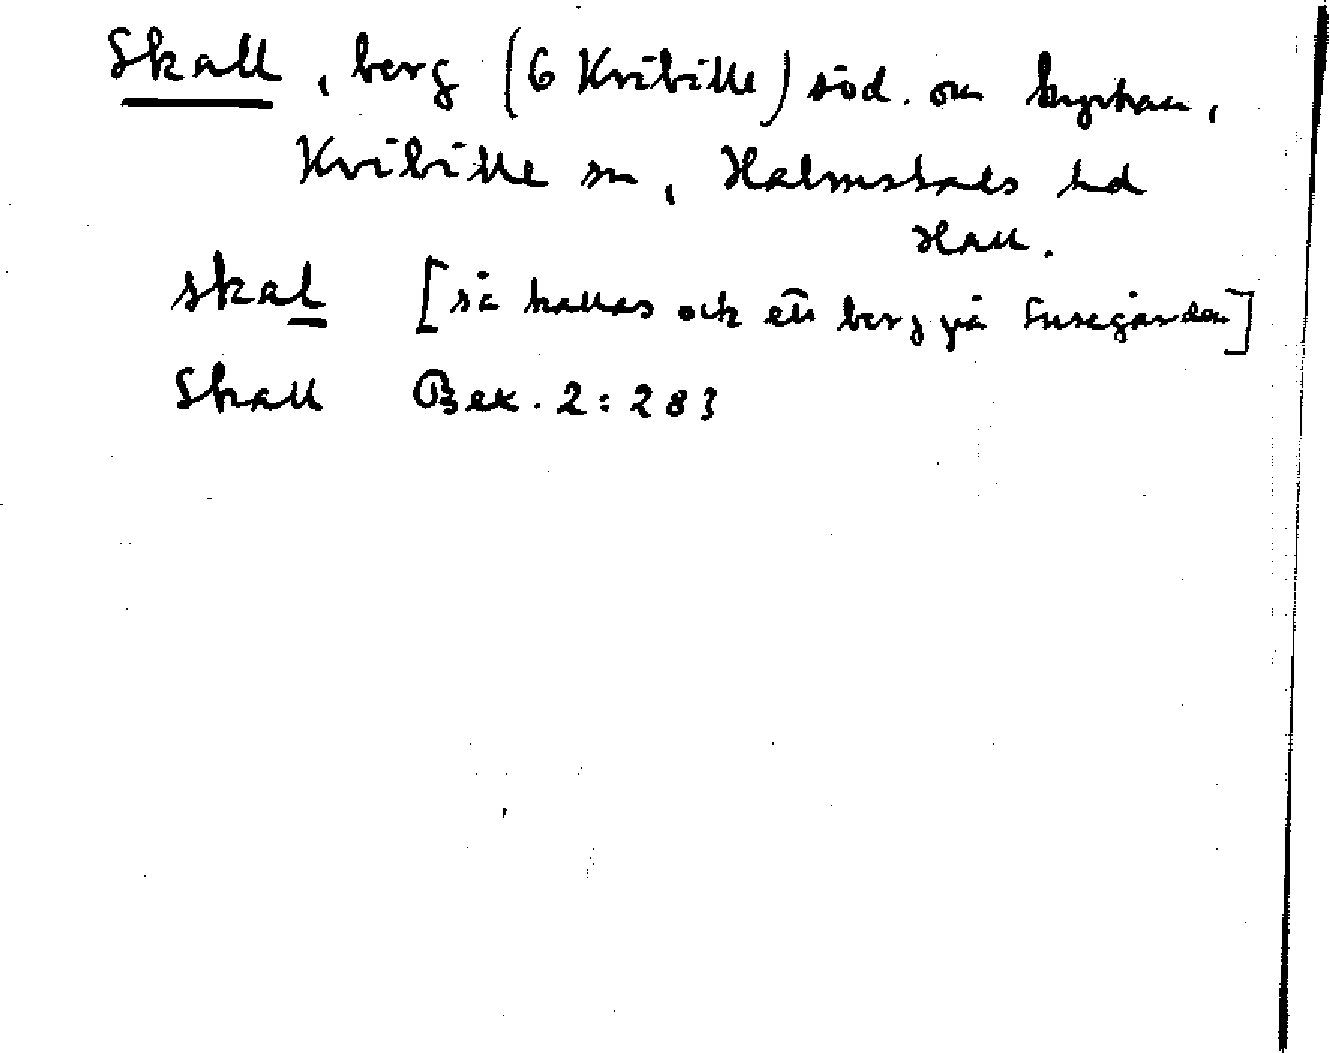 Skall, berg (6 Kvibille) söd. om kyrkan,
Kvibille sn, Halmstads hd
Hall.
skal [så kallas och ett berg på Susegården]
Skall Bex. 2:283